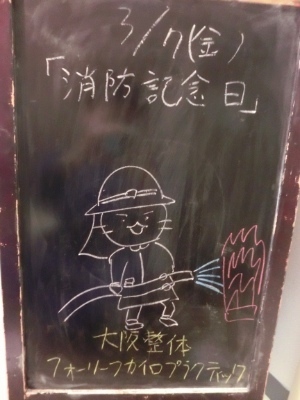 3/7(金)
「消防記念日」
大阪整体
フォーリーフカイロプラクティック